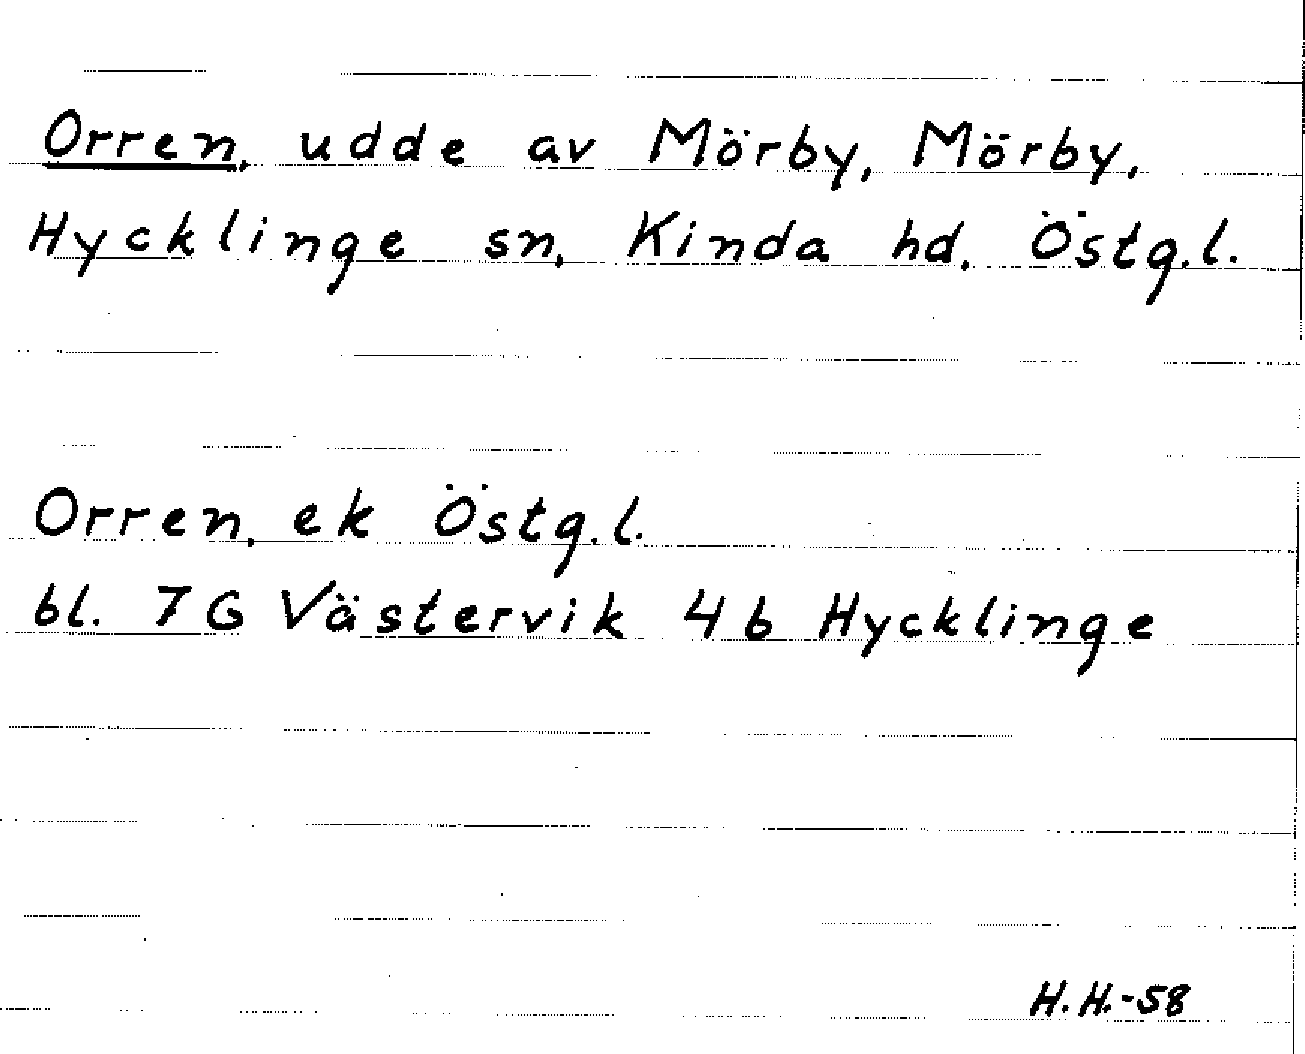 Orren, udde av Mörby, Mörby,
Hycklinge sn, Kinda hd, Östg.l.
Orren, ek Östg.l.
bl. 7G Västervik 4b Hycklinge
H.H.-58